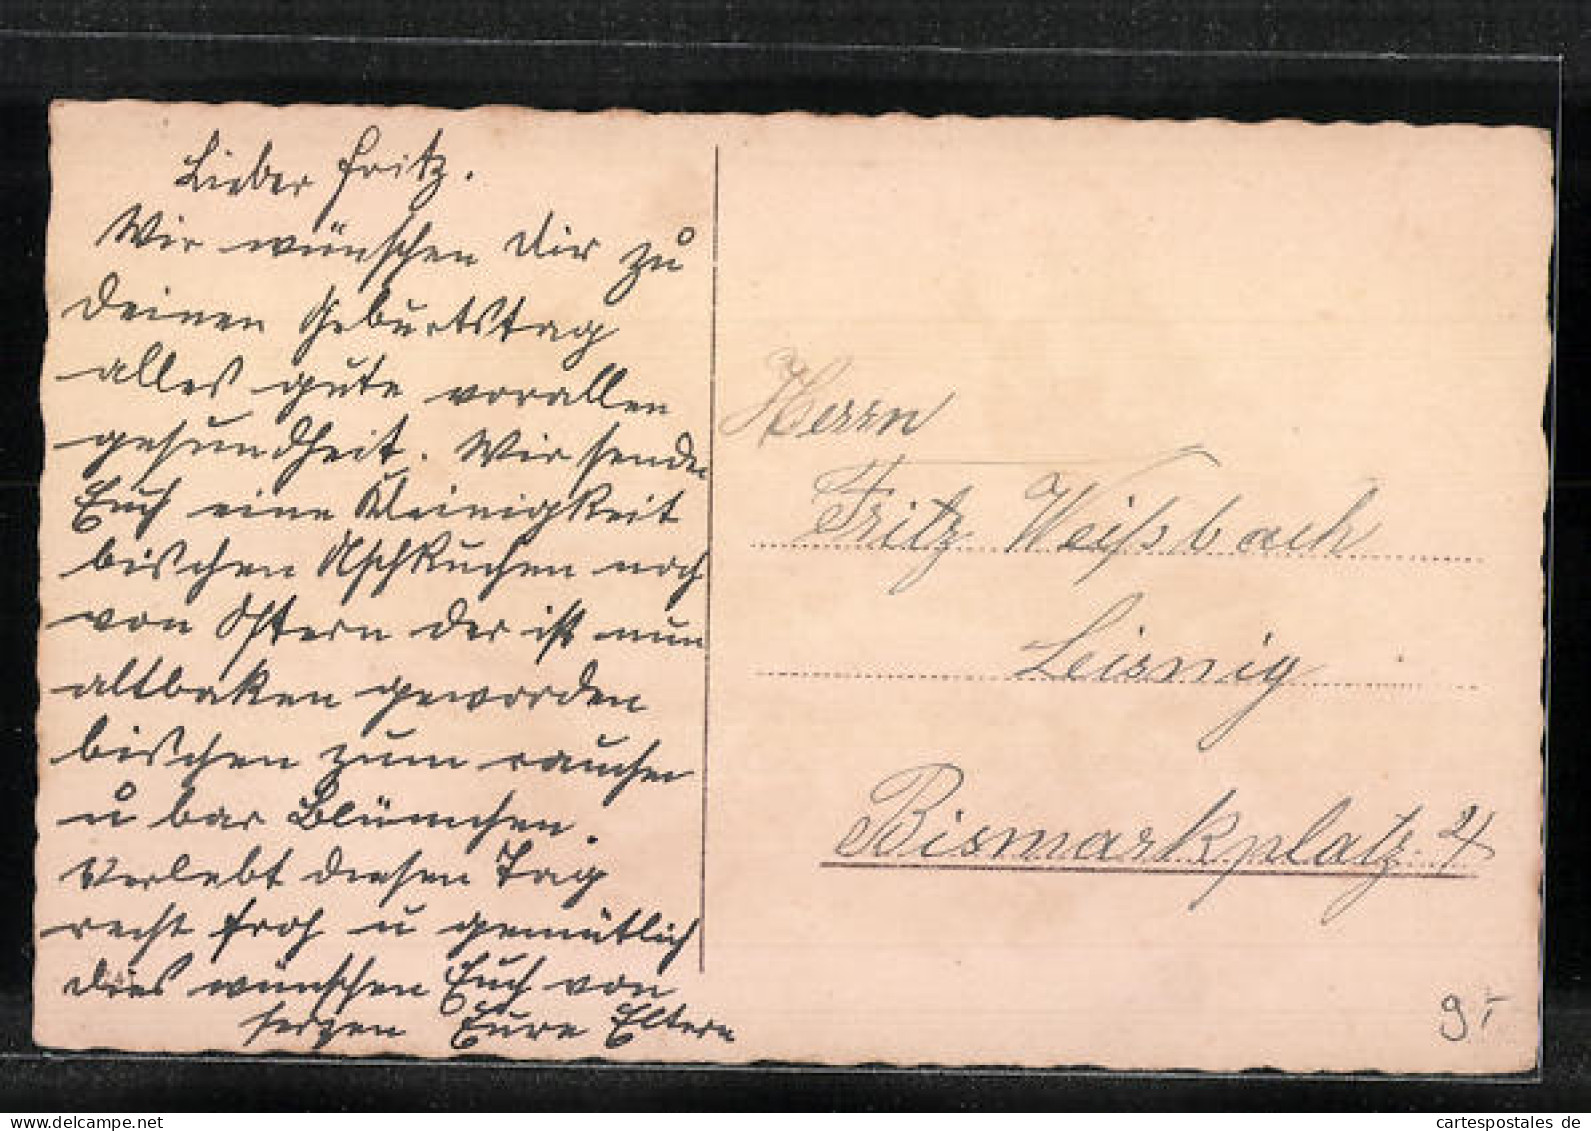 Lieber Fritz.
Wir wünschen Dir zu
Deinen Geburtstag
alles gute vorallen
gesundheit. Wir senden
Euch eine Kleinigkeit
bischen Aschkuchen noch
von Ostern der ist nun
altbaken geworden
bischen zum rauchen
u bar Blümchen.
Verlebt diesen Tag
recht froh u gemütlich
dies wünschen Euch von
herzen Eure Eltern
Herrn
Fritz Weißbach
Leisnig
Bismarkplatz. 4
9.-
cartespostales de
www.delcampe.net